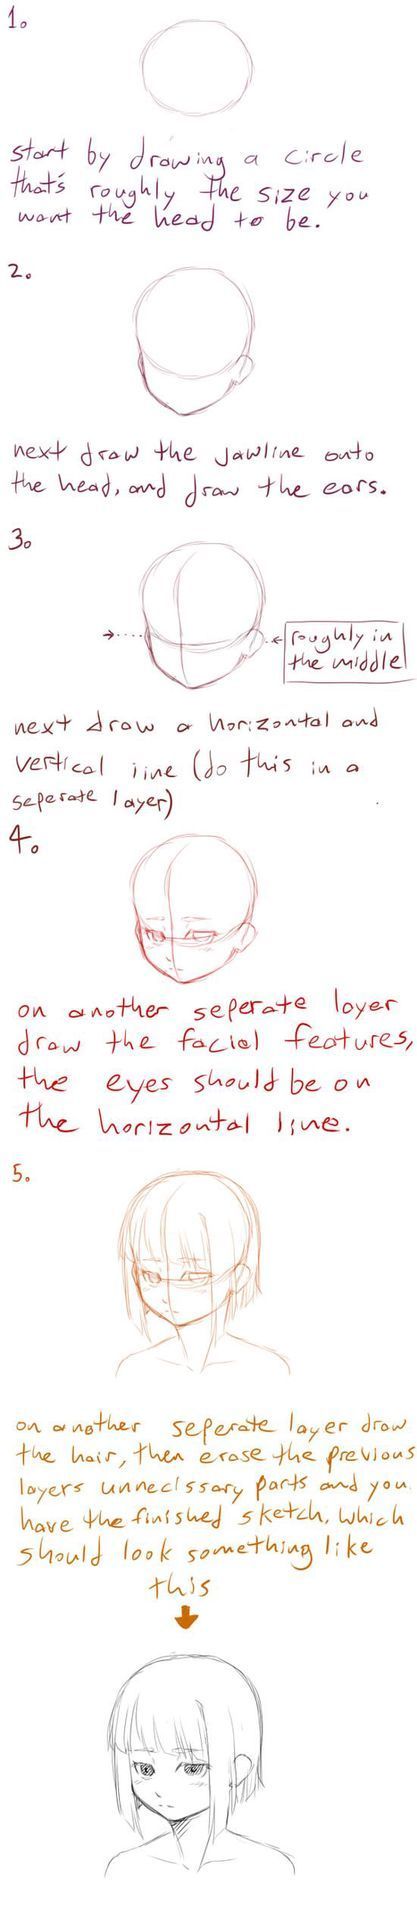 1.
start by drawing a circle
that's roughly the size you
want the head to be.
2.
next draw the jawline onto
the head, and draw the ears.
3.
roughly in
the middle
next draw a horizontal and
vertical line (do this in a
seperate layer)
4.
on another seperate layer
draw the facial features,
the eyes should be on
the horizontal line.
5.
on another seperate layer draw
the hair, then erase the previous
layers unnecissary parts and you
have the finished sketch. which
should look something like
this